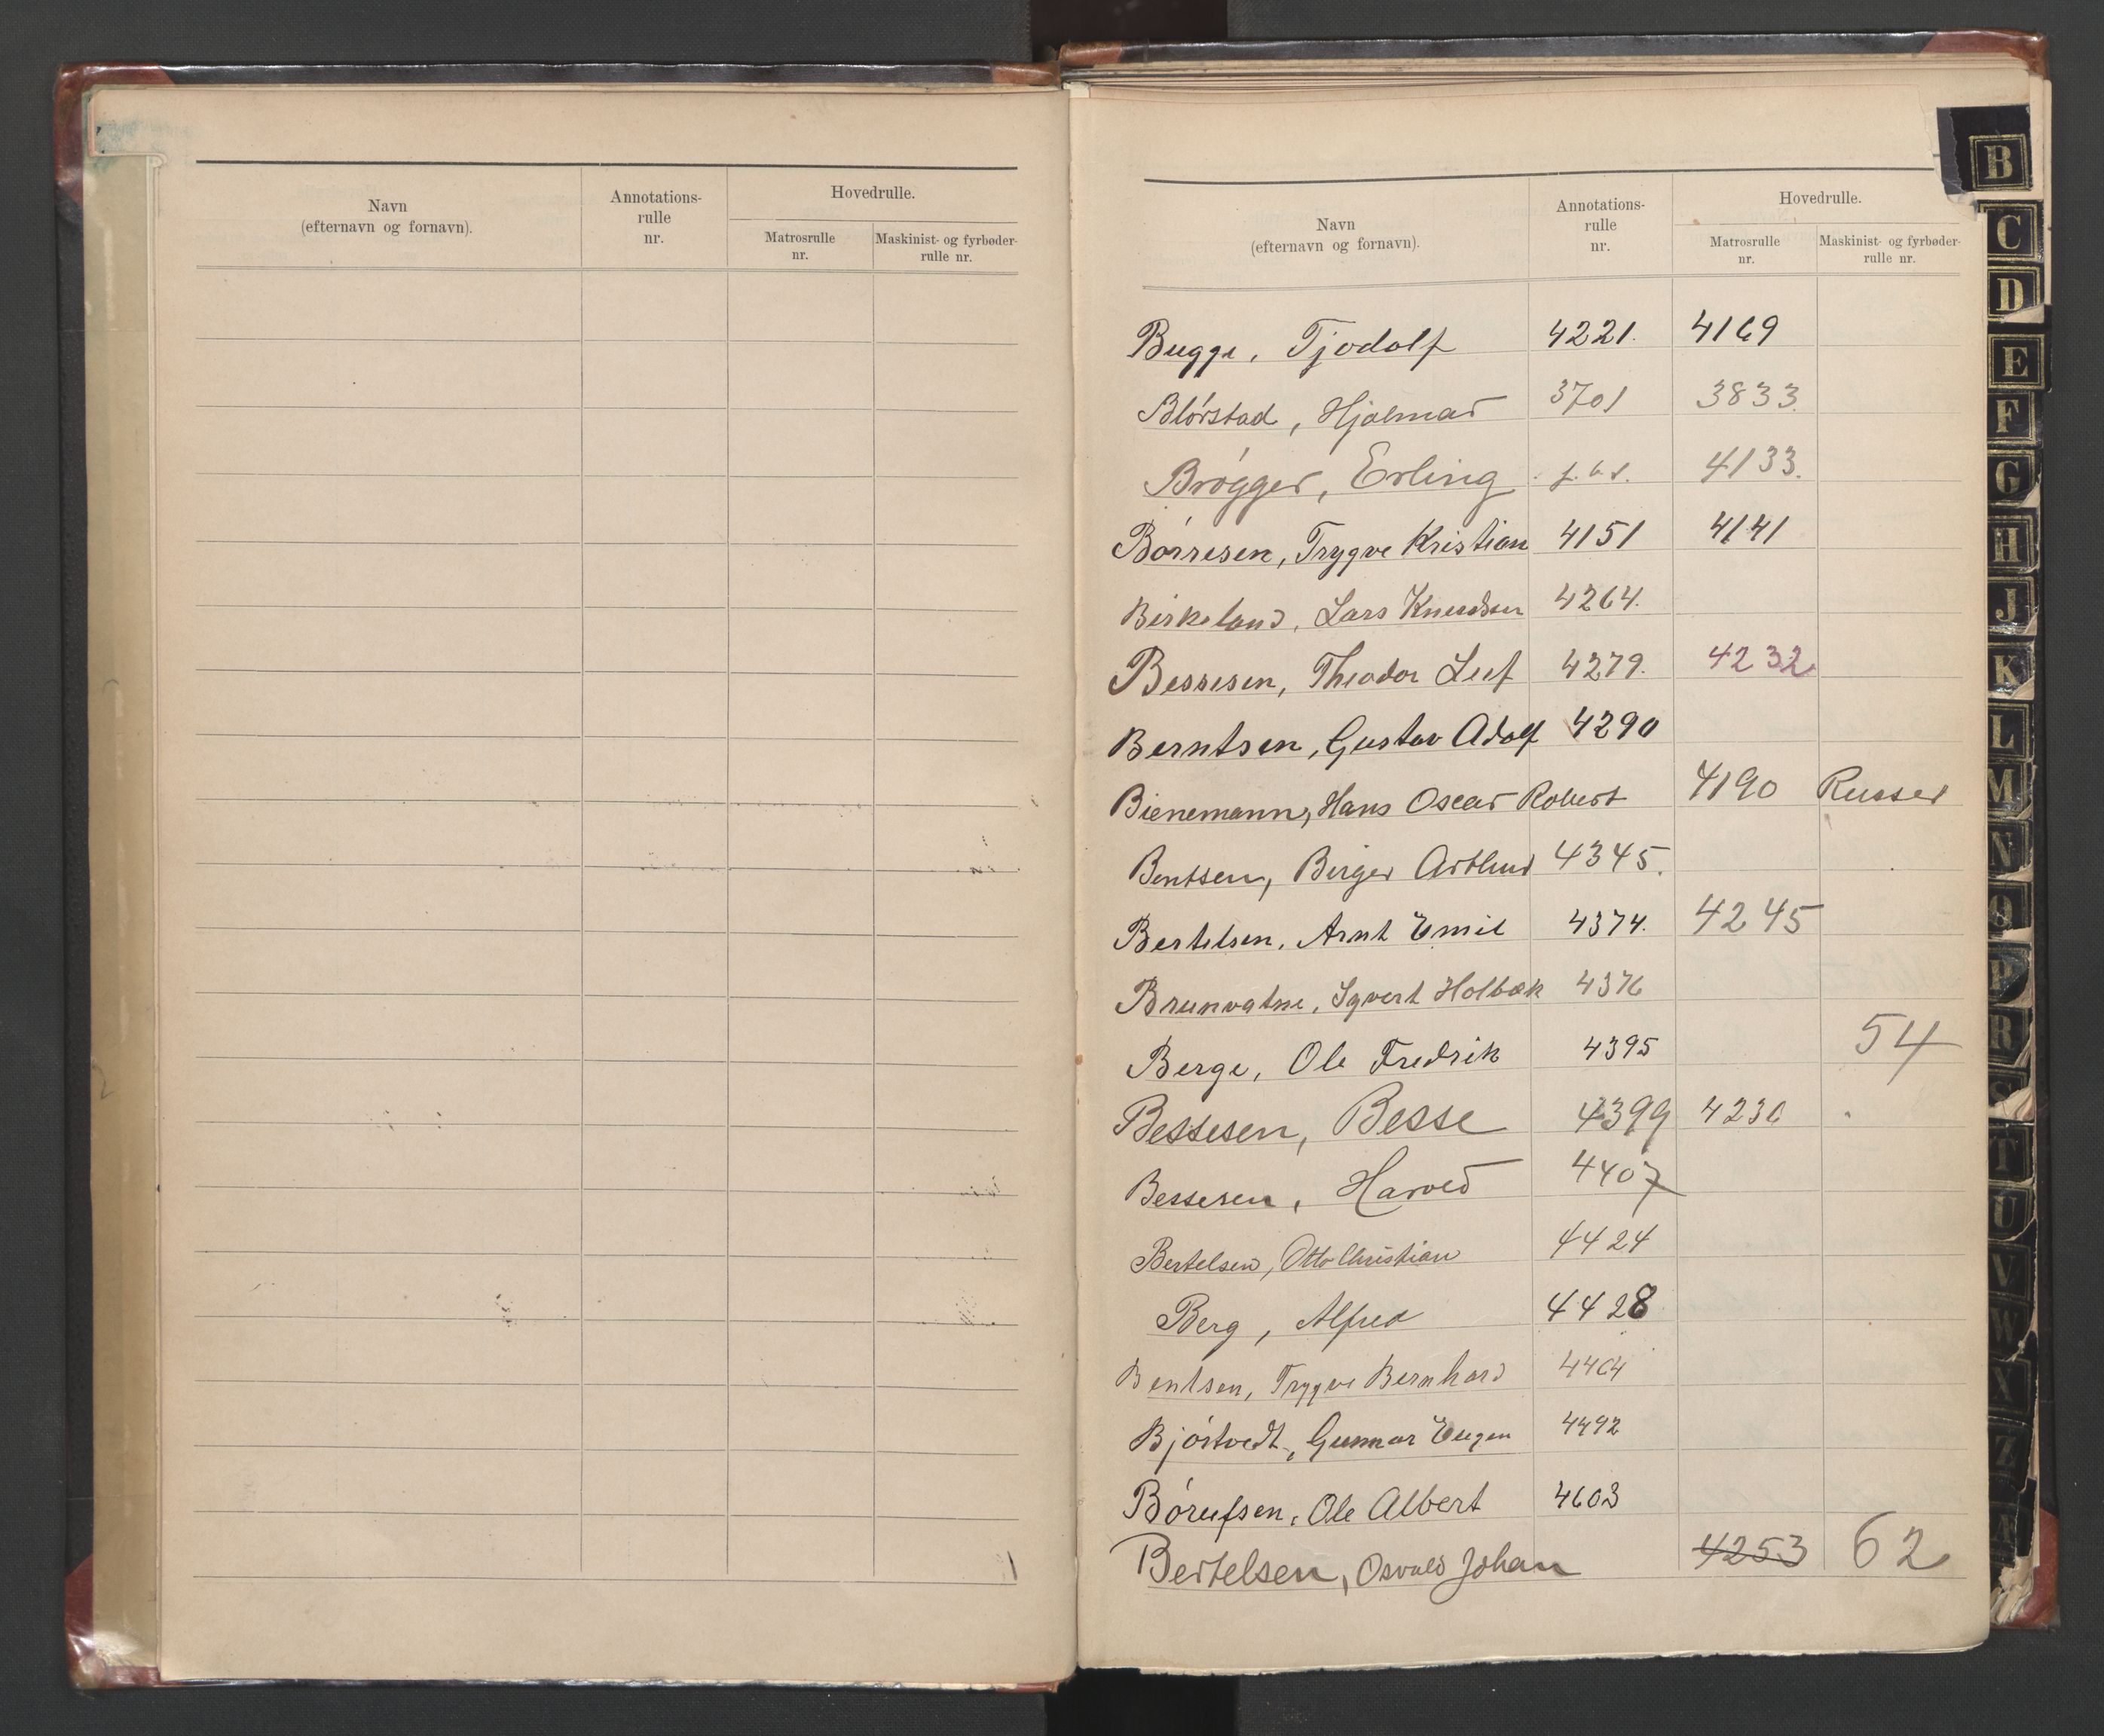 Navn
(efternavn og fornavn).
Annotations-
rulle
nr.
Hovedrulle.
Matrosrulle
nr.
Maskinist- og fyrbøder-
rulle nr.
Navn
(efternavn og fornavn).
Annotations-
rulle
nr.
Hovedrulle.
Matrosrulle
nr.
Maskinist- og fyrbøder-
rulle nr.
Bugge, Tjodolf 4221. 4169
Blörstad, Hjalmar 3701 3833.
Brøgger, Erling 4133.
Børresen, Trygve Kristian 4151 4141
Birkeland, Lars Knudsen 4264.
Bessesen, Theodor Leif 4279. 4232
Berntsen, Gustav Adolf 4290
Bienemann, Hans Oscar Robert 4190 Russer
Bentsen, Birger Arthur 4345.
Bertelsen, Arnt Emil 4374. 4245
Brunvatne, Syvert Holbæk 4376
Berge, Ole Fredrik 4395 54
Bessesen, Besse 4399 4230
Bessesen, Harved 4407
Bertelsen, Otto Christian 4424
Berg, Alfred 4428
Bentsen, Trygve Bernhard 4464
Bjørtvedt, Gunnar Eugen 4492
Børufsen, Ole Albert 4603
Bertelsen, Osvald Johan 4253 62
B
C
D
E
F
G
H
J
K
L
M
N
O
P
R
S
T
U
V
W
X
Z